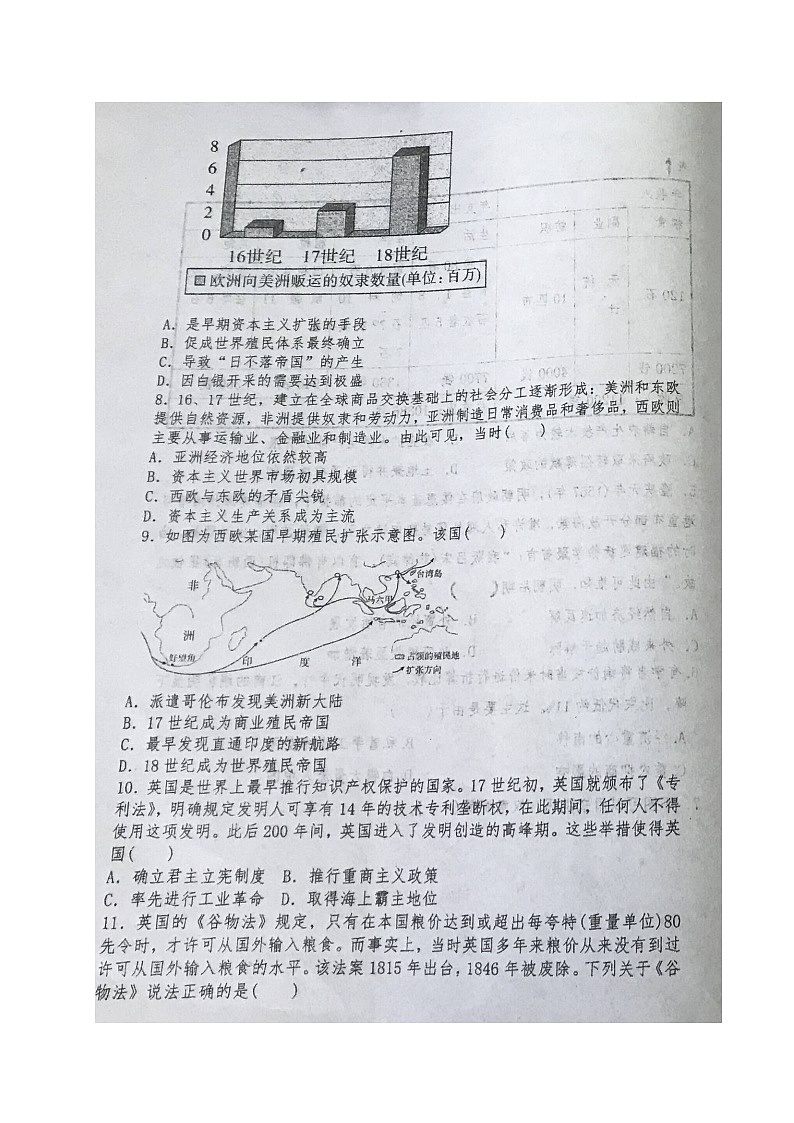 8
6
4
2
0
16世纪 17世纪 18世纪
欧洲向美洲贩运的奴隶数量(单位:百万)
A. 是早期资本主义扩张的手段
B. 促成世界殖民体系最终确立
C. 导致“日不落帝国”的产生
D. 因白银开采的需要达到极盛
8. 16、17世纪,建立在全球商品交换基础上的社会分工逐渐形成:美洲和东欧
提供自然资源,非洲提供奴隶和劳动力,亚洲制造日常消费品和奢侈品,西欧则
主要从事运输业、金融业和制造业。由此可见,当时( )
A. 亚洲经济地位依然较高
B. 资本主义世界市场初具规模
C. 西欧与东欧的矛盾尖锐
D. 资本主义生产关系成为主流
9. 如图为西欧某国早期殖民扩张示意图。该国( )
非
洲
好望角
印 度 洋
马六甲
台湾岛
占领的殖民地
扩张方向
A. 派遣哥伦布发现美洲新大陆
B. 17世纪成为商业殖民帝国
C. 最早发现直通印度的新航路
D. 18世纪成为世界殖民帝国
10. 英国是世界上最早推行知识产权保护的国家。17世纪初,英国就颁布了《专
利法》,明确规定发明人可享有14年的技术专利垄断权,在此期间,任何人不得
使用这项发明。此后200年间,英国进入了发明创造的高峰期。这些举措使得英
国( )
A. 确立君主立宪制度 B. 推行重商主义政策
C. 率先进行工业革命 D. 取得海上霸主地位
11. 英国的《谷物法》规定,只有在本国粮价达到或超出每夸特(重量单位)80
先令时,才许可从国外输入粮食。而事实上,当时英国多年来粮价从来没有到过
许可从国外输入粮食的水平。该法案1815年出台,1846年被废除。下列关于《谷
物法》说法正确的是( )